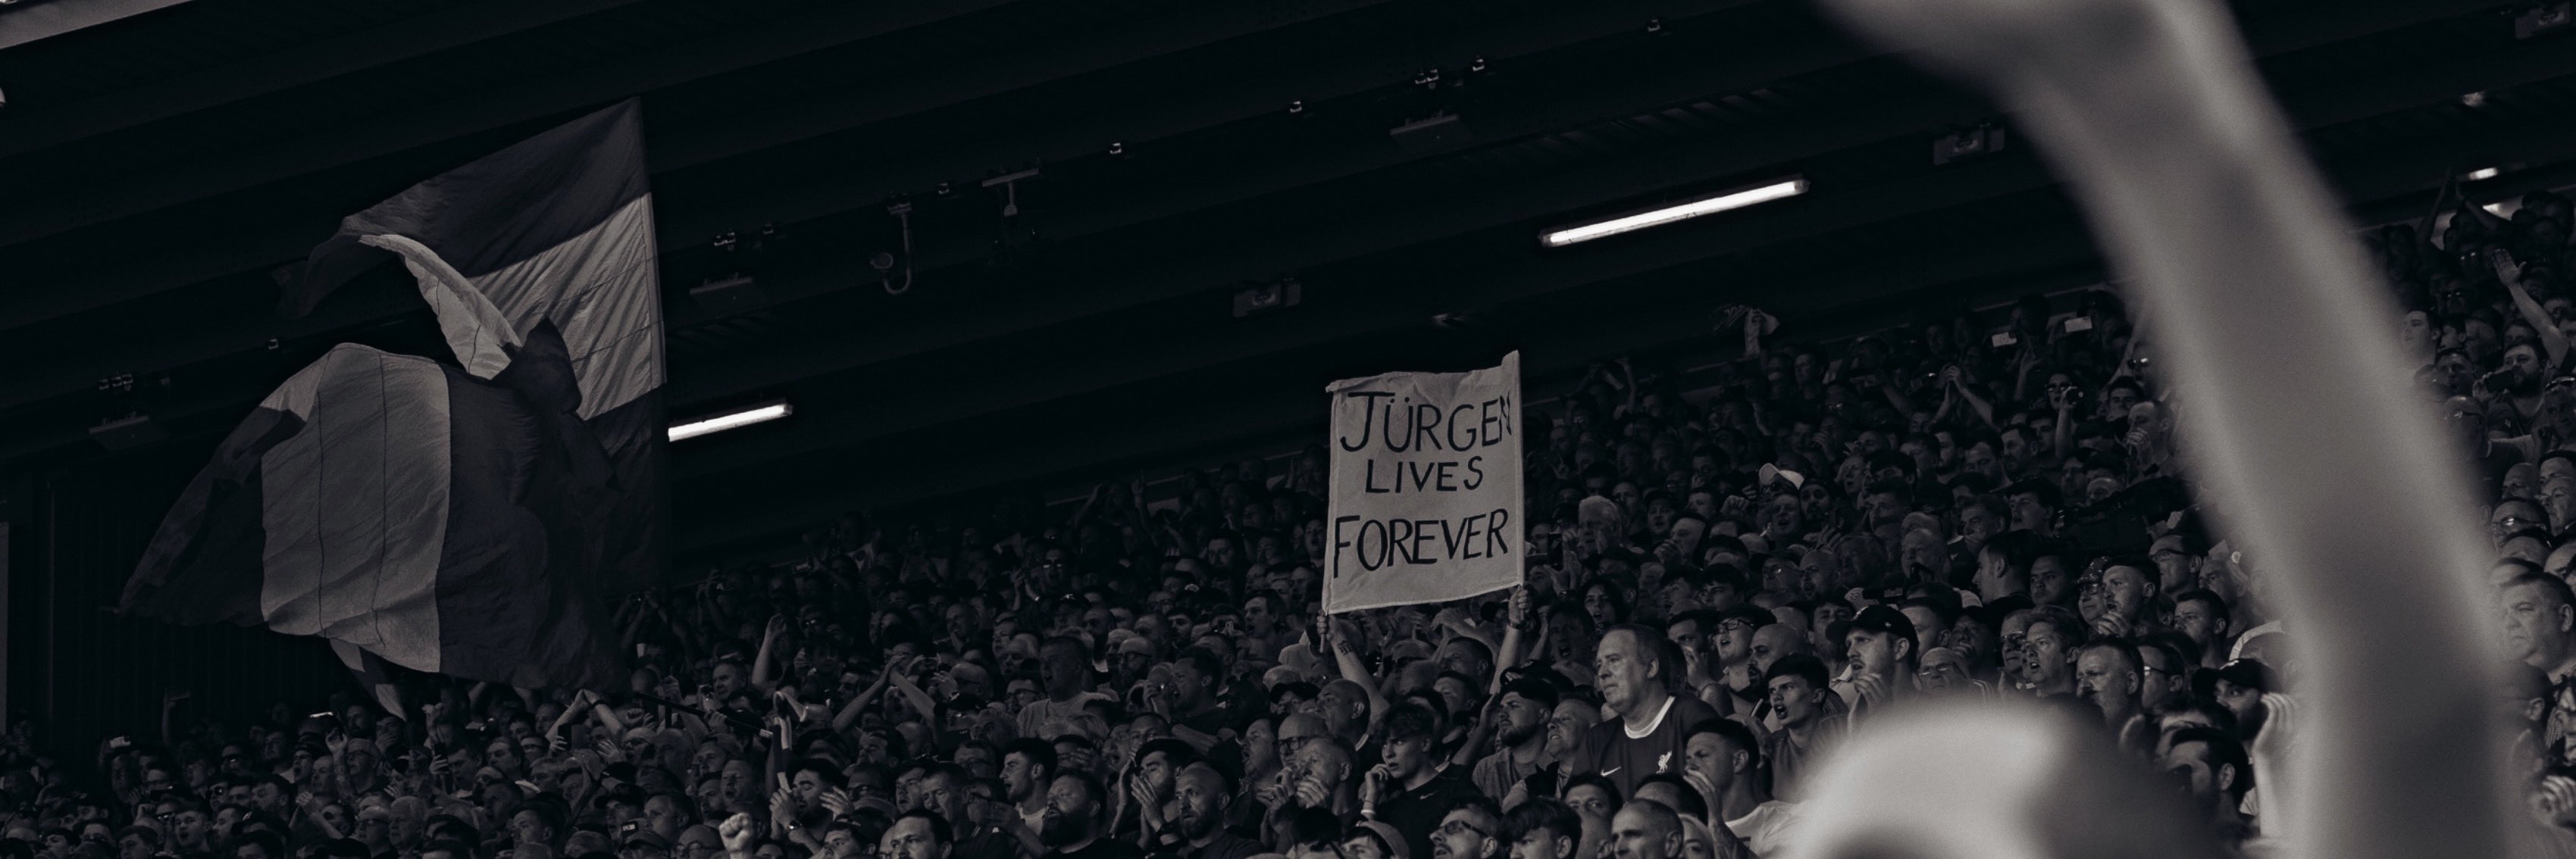 JÜRGEN
LIVES
FOREVER